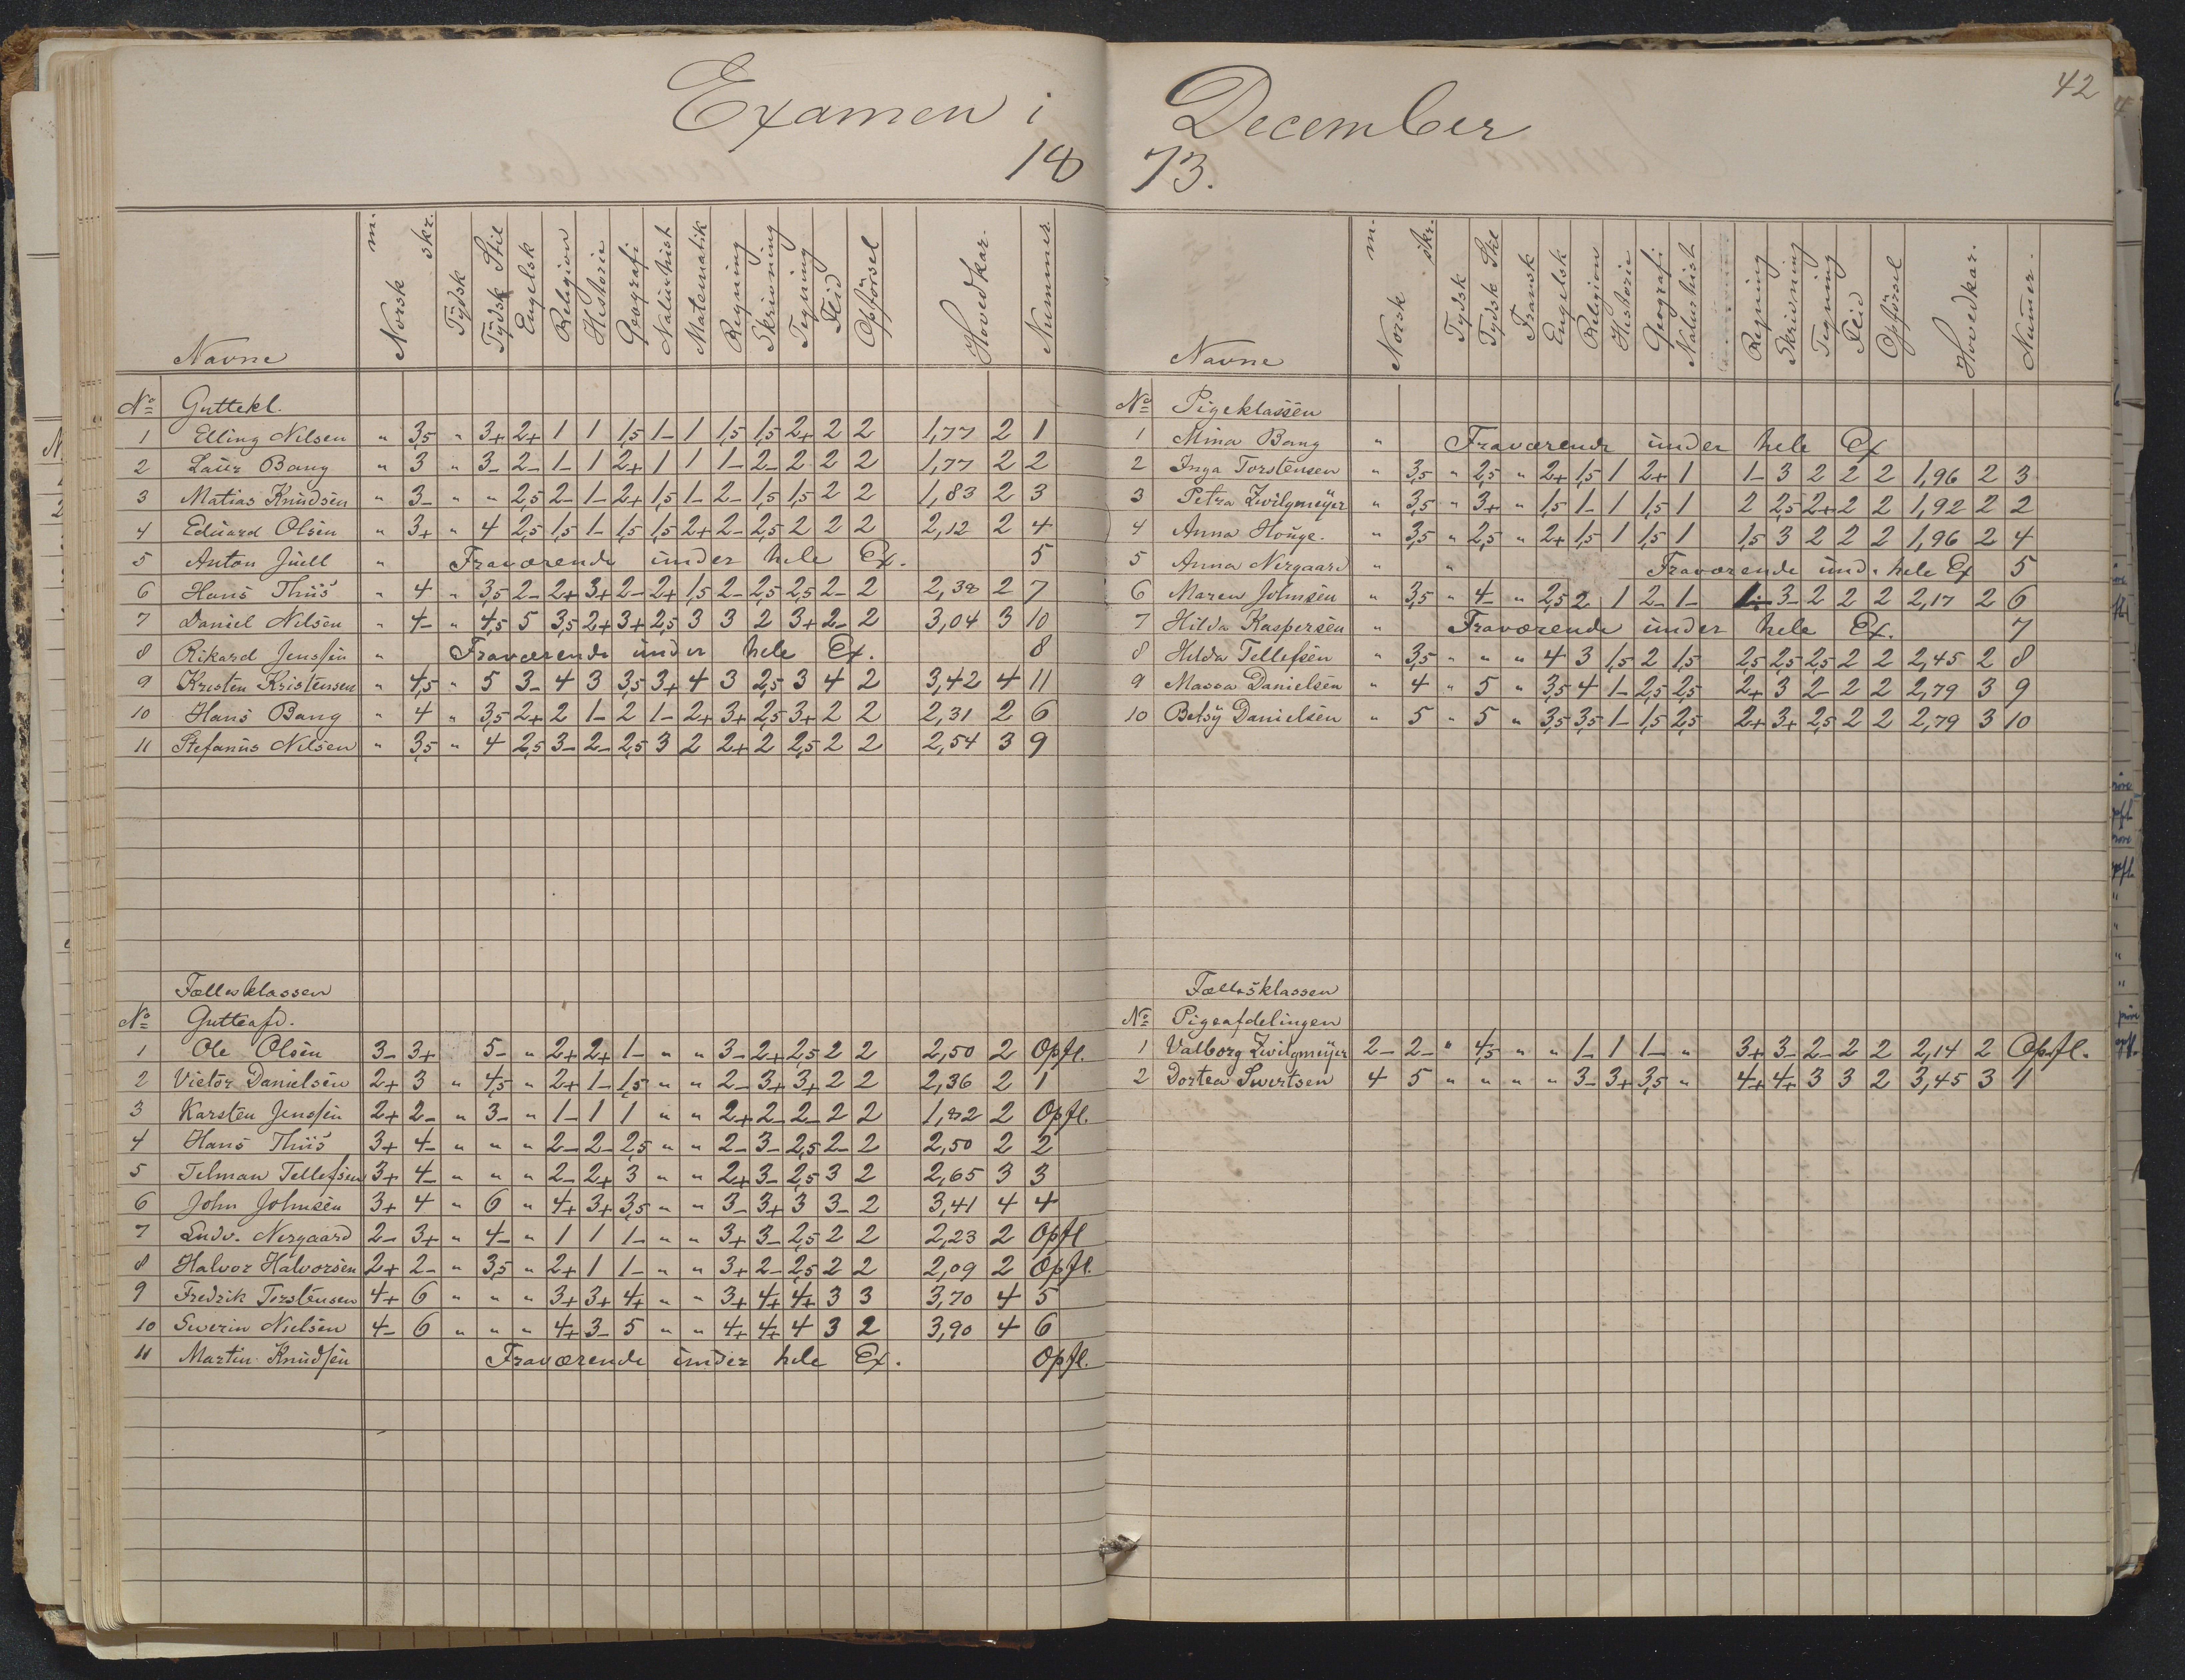 Examen i
18
Navne | Norsk m. | skr. | Tydsk | Tydsk Stil | Engelsk | Religion | Historie | Geografi | Naturhist | Matematik | Regning | Skrivning | Tegning | Flid | Opförsel | Hovedkar. | Nummer
No Guttekl.
1 Elling Nilsen " 3,5 " 3+ 2+ 1 1 1,5 1- 1 1,5 1,5 2+ 2 2 1,77 2 1
2 Laur Bang " 3 " 3- 2- 1- 1 2+ 1 1 1- 2- 2 2 2 1,77 2 2
3 Matias Knudsen " 3- " " 2,5 2- 1- 2+ 1,5 1- 2- 1,5 1,5 2 2 1,83 2 3
4 Eduard Olsen " 3+ " 4 2,5 1,5 1- 1,5 1,5 2+ 2- 2,5 2 2 2 2,12 2 4
5 Anton Juell " Fraværende under hele Ex. 5
6 Hans Thiis " 4 " 3,5 2- 2+ 3+ 2- 2+ 1,5 2- 2,5 2,5 2- 2 2,38 2 7
7 Daniel Nilsen " 4- " 4,5 5 3,5 2+ 3+ 2,5 3 3 2 3+ 2- 2 3,04 3 10
8 Rikard Jenssen " Fraværende under hele Ex. 8
9 Kristen Kristensen " 4,5 " 5 3- 4 3 3,5 3+ 4 3 2,5 3 4 2 3,42 4 11
10 Hans Bang " 4 " 3,5 2+ 2 1- 2 1- 2+ 3+ 2,5 3+ 2 2 2,31 2 6
11 Stefanus Nilsen " 3,5 " 4 2,5 3- 2- 2,5 3 2 2+ 2 2,5 2 2 2,54 3 9
Fællesklassen
No Gutteafd.
1 Ole Olsen 3- 3+ 5- " 2+ 2+ 1- " " 3- 2+ 2,5 2 2 2,50 2 Opfl.
2 Victor Danielsen 2+ 3 " 4,5 " 2+ 1- 1,5 " " 2- 3+ 3+ 2 2 2,36 2 1
3 Karsten Jenssen 2+ 2- " 3- " 1- 1 1 " " 2+ 2- 2- 2 2 1,82 2 Opfl.
4 Hans Thiis 3+ 4- " " " 2- 2- 2,5 " " 2- 3- 2,5 2- 2 2,50 2 2
5 Telman Tellefsen 3+ 4- " " " 2- 2+ 3 " " 2+ 3- 2,5 3 2 2,65 3 3
6 John Johnsen 3+ 4 " 6 " 4+ 3+ 3,5 " " 3- 3+ 3 3- 2 3,41 4 4
7 Ludv. Nergaard 2- 3+ " 4- " 1 1 1- " " 3+ 3- 2,5 2 2 2,23 2 Opfl
8 Halvor Halvorsen 2+ 2- " 3,5 " 2+ 1 1- " " 3+ 2- 2,5 2 2 2,09 2 Opfl.
9 Fredrik Torstensen 4+ 6 " " " 3+ 3+ 4+ " " 3+ 4+ 4+ 3 3 3,70 4 5
10 Swerin Nielsen 4- 6 " " " 4+ 3- 5 " " 4+ 4+ 4 3 2 3,90 4 6
11 Martin Knudsen Fraværende under hele Ex. Opfl.
42
December
73.
Navne | Norsk m. | skr. | Tydsk | Tydsk Stil | Fransk | Engelsk | Religion | Historie | Geografi | Naturhist | Regning | Skrivning | Tegning | Flid | Opförsel | Hovedkar. | Numer.
No Pigeklassen
1 Mina Bang " Fraværende under hele Ex
2 Inga Torstensen " 3,5 " 2,5 " 2+ 1,5 1 2+ 1 1- 3 2 2 2 1,96 2 3
3 Petra Zwilgmeyer " 3,5 " 3+ " 1,5 1- 1 1,5 1 2 2,5 2+ 2 2 1,92 2 2
4 Anna Houge. " 3,5 " 2,5 " 2+ 1,5 1 1,5 1 1,5 3 2 2 2 1,96 2 4
5 Anna Nergaard " " Fraværende und. hele Ex 5
6 Maren Johnsen " 3,5 " 4- " 2,5 2 1 2- 1- 1- 3- 2 2 2 2,17 2 6
7 Hilda Kaspersen " Fraværende under hele Ex. 7
8 Helda Tellefsen " 3,5 " " " 4 3 1,5 2 1,5 2,5 2,5 2,5 2 2 2,45 2 8
9 Massa Danielsen " 4 " 5 " 3,5 4 1- 2,5 2,5 2+ 3 2- 2 2 2,79 3 9
10 Betsy Danielsen " 5 " 5 " 3,5 3,5 1- 1,5 2,5 2+ 3+ 2,5 2 2 2,79 3 10
Fællesklassen
No Pigeafdelingen
1 Valborg Zwilgmeyer 2- 2- " 4,5 " " 1- 1 1- " 3+ 3- 2- 2 2 2,14 2 Opfl.
2 Dortea Swertsen 4 5 " " " " 3- 3+ 3,5 " 4+ 4+ 3 3 2 3,45 3 1